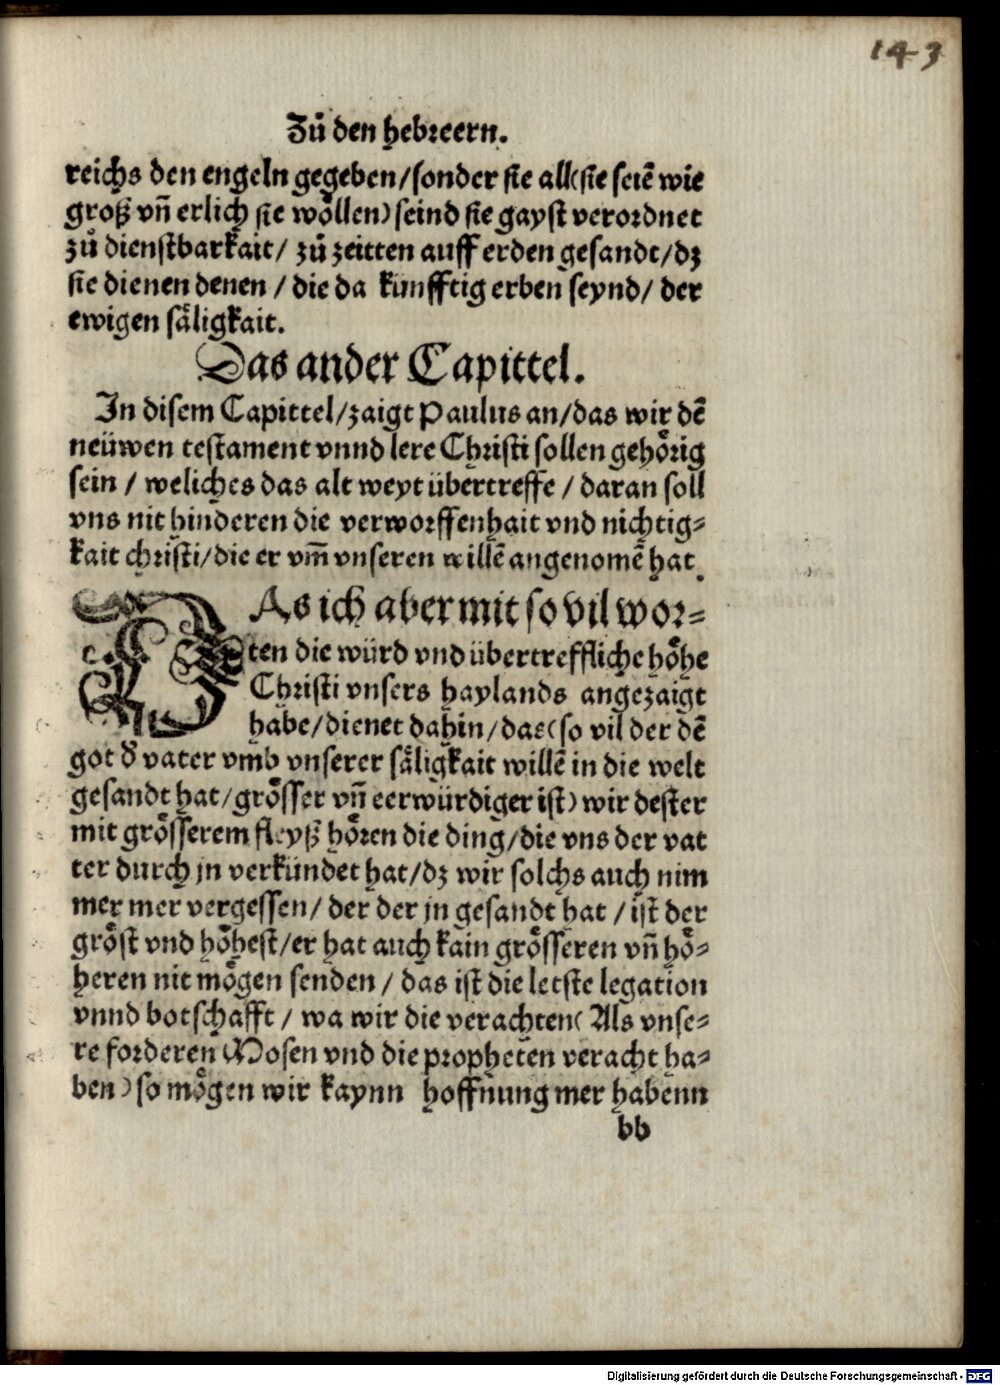 143
Zů den hebreern.
reichs den engeln gegeben/sonder sie all(sie seiē wie
groß vñ erlich sie wöllen)seind sie gayst verordnet
zů dienstbarkait/ zů zeitten auff erden gesandt/dz
sie dienen denen / die da künfftig erben seynd/ der
ewigen säligkait.
Das ander Capittel.
In disem Capittel/zaigt Paulus an/das wir dē
neüwen testament vnnd lere Christi sollen gehörig
sein / weliches das alt weyt übertreffe / daran soll
vns nit hinderen die verworffenhait vnd nichtig⸗
kait christi/die er vm̄ vnseren willē angenomē hat.
DAs ich aber mit so vil wor⸗
ten die würd vnd übertreffliche höhe
Christi vnsers haylands angezaigt
habe/dienet dahin/das(so vil der dē
got d̕ vater vmb vnserer säligkait willē in die welt
gesandt hat/grösser vñ eerwürdiger ist)wir dester
mit grösserem fleyß hören die ding/die vns der vat
ter durch jn verkündet hat/dz wir solchs auch nim
mer mer vergessen/ der der jn gesandt hat / ist der
gröst vnd höhest/er hat auch kain grösseren vñ hö⸗
heren nit mögen senden / das ist die letste legation
vnnd botschafft / wa wir die verachten( Als vnse⸗
re forderen Mosen vnd die propheten veracht ha⸗
ben)so mögen wir kaynn hoffnung mer habenn
bb
Digitalisierung gefördert durch die Deutsche Forschungsgemeinschaft - DFG